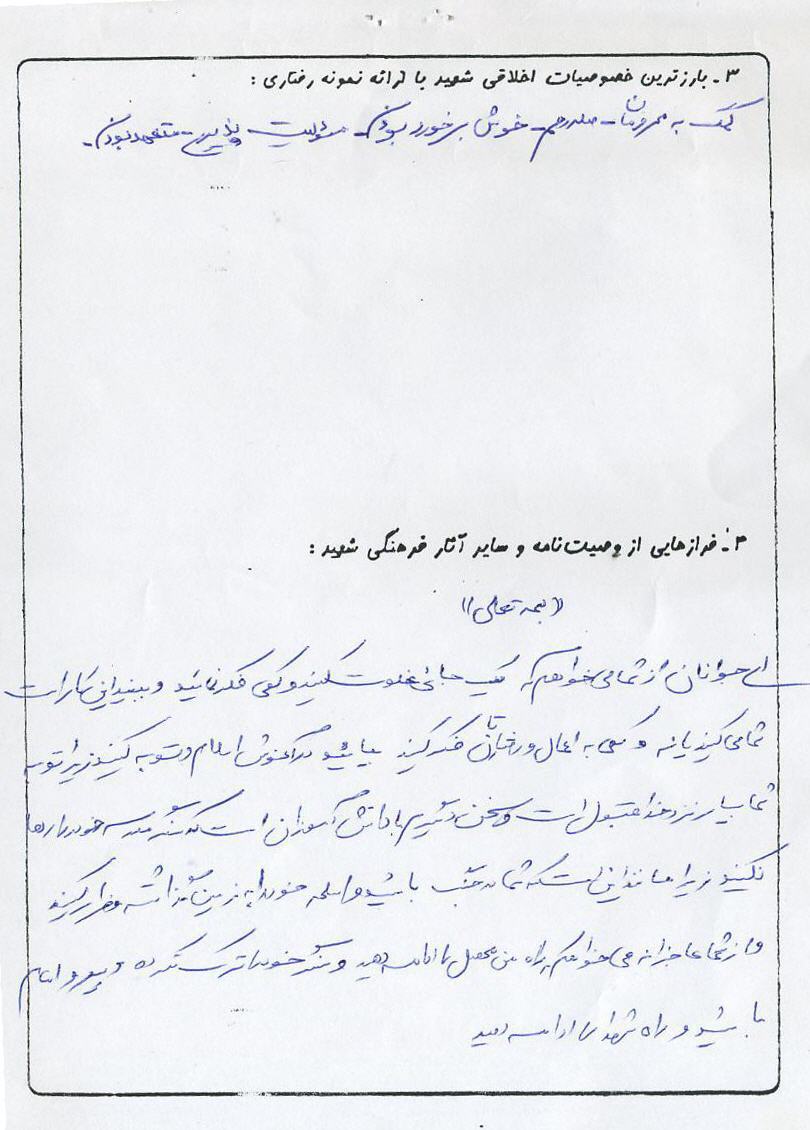 ۳ـ بارزترین خصوصیات اخلاقی شهید با ارائه نمونه رفتاری :
کمک به محرومان ـ صله رحم ـ خوش برخورد بودن ـ مسئولیت پذیری ـ متعهد بودن ـ
۴ـ فرازهایی از وصیت‌نامه و سایر آثار فرهنگی شهید :
((بسمه تعالی))
ای جوانان از شما می‌خواهم که یک جائی خلوت کنید و کمی فکر نمائید و ببینید این کار است
شما می‌کنید یا نه و کمی به اعمال و رفتارتان فکر کنید بیائید در آغوش اسلام و توبه کنید زیرا توبه
شما بسیار نزد خدا مقبول است و سخن دیگرم با دانش آموزان است که سنگر مدرسه خود را رها
نکنید زیرا مانند این است که شما در جنگ باشید و اسلحه خود را به زمین گذاشته و فرار کنید
و از شما عاجزانه می‌خواهم راه من محصل را ادامه دهید و سنگر خود را ترک نکرده و پیرو امام
باشید و راه شهدا را ادامه دهید